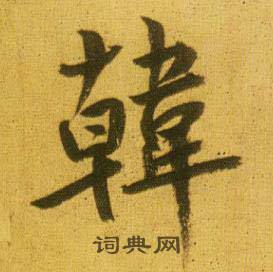 韓
词典网